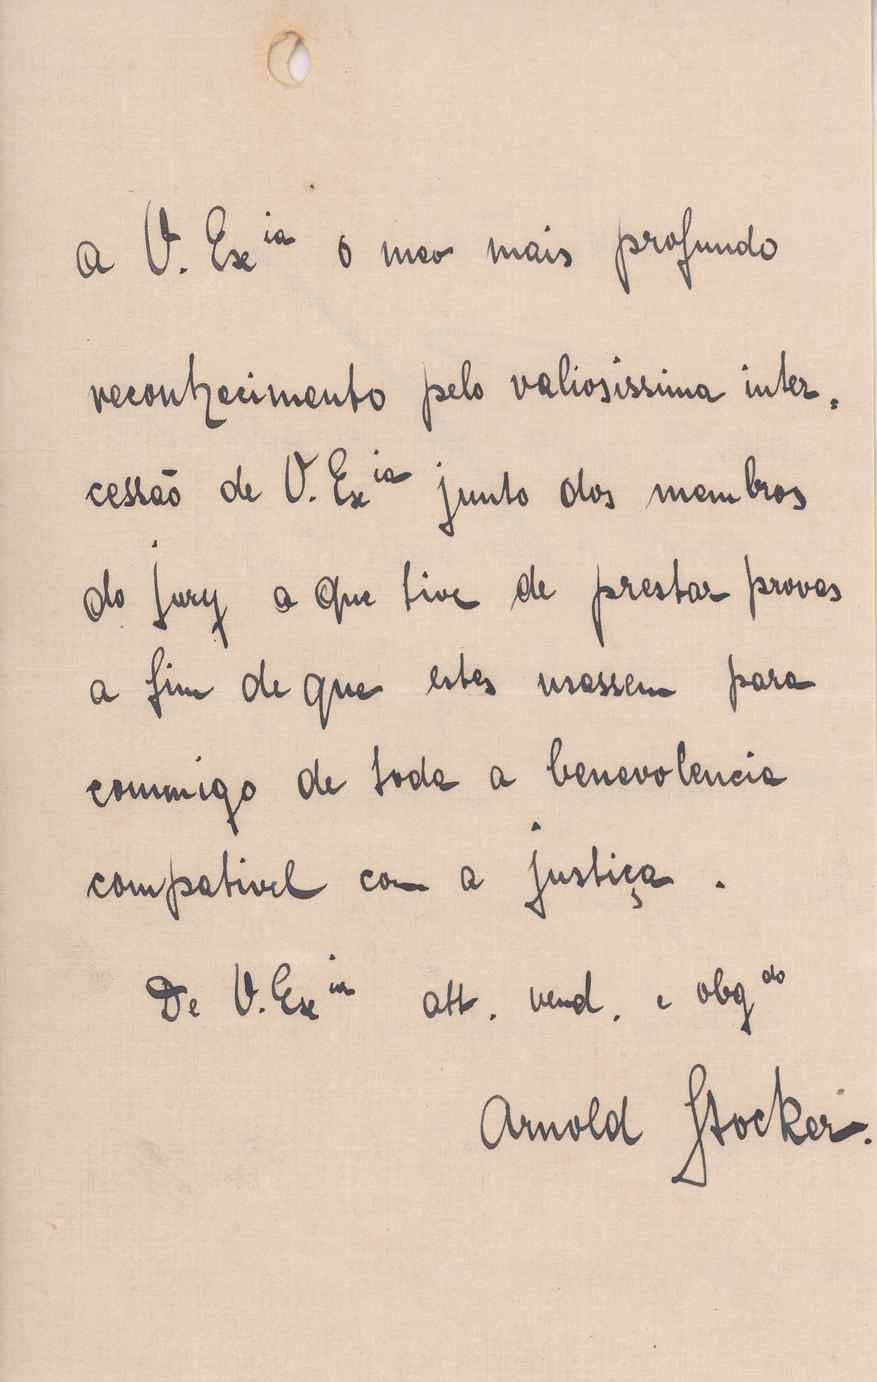 a V. Ex^ia o meo mais profundo
reconhecimento pelo valiosissima inter-
cessão de V. Ex^ia junto dos membros
do jury a que tive de prestar provas
a fim de que estes usassem para
commigo de toda a benevolencia
compativel com a justiça .
De V. Ex^ia att. vend. e obg^do
Arnold Stocker.